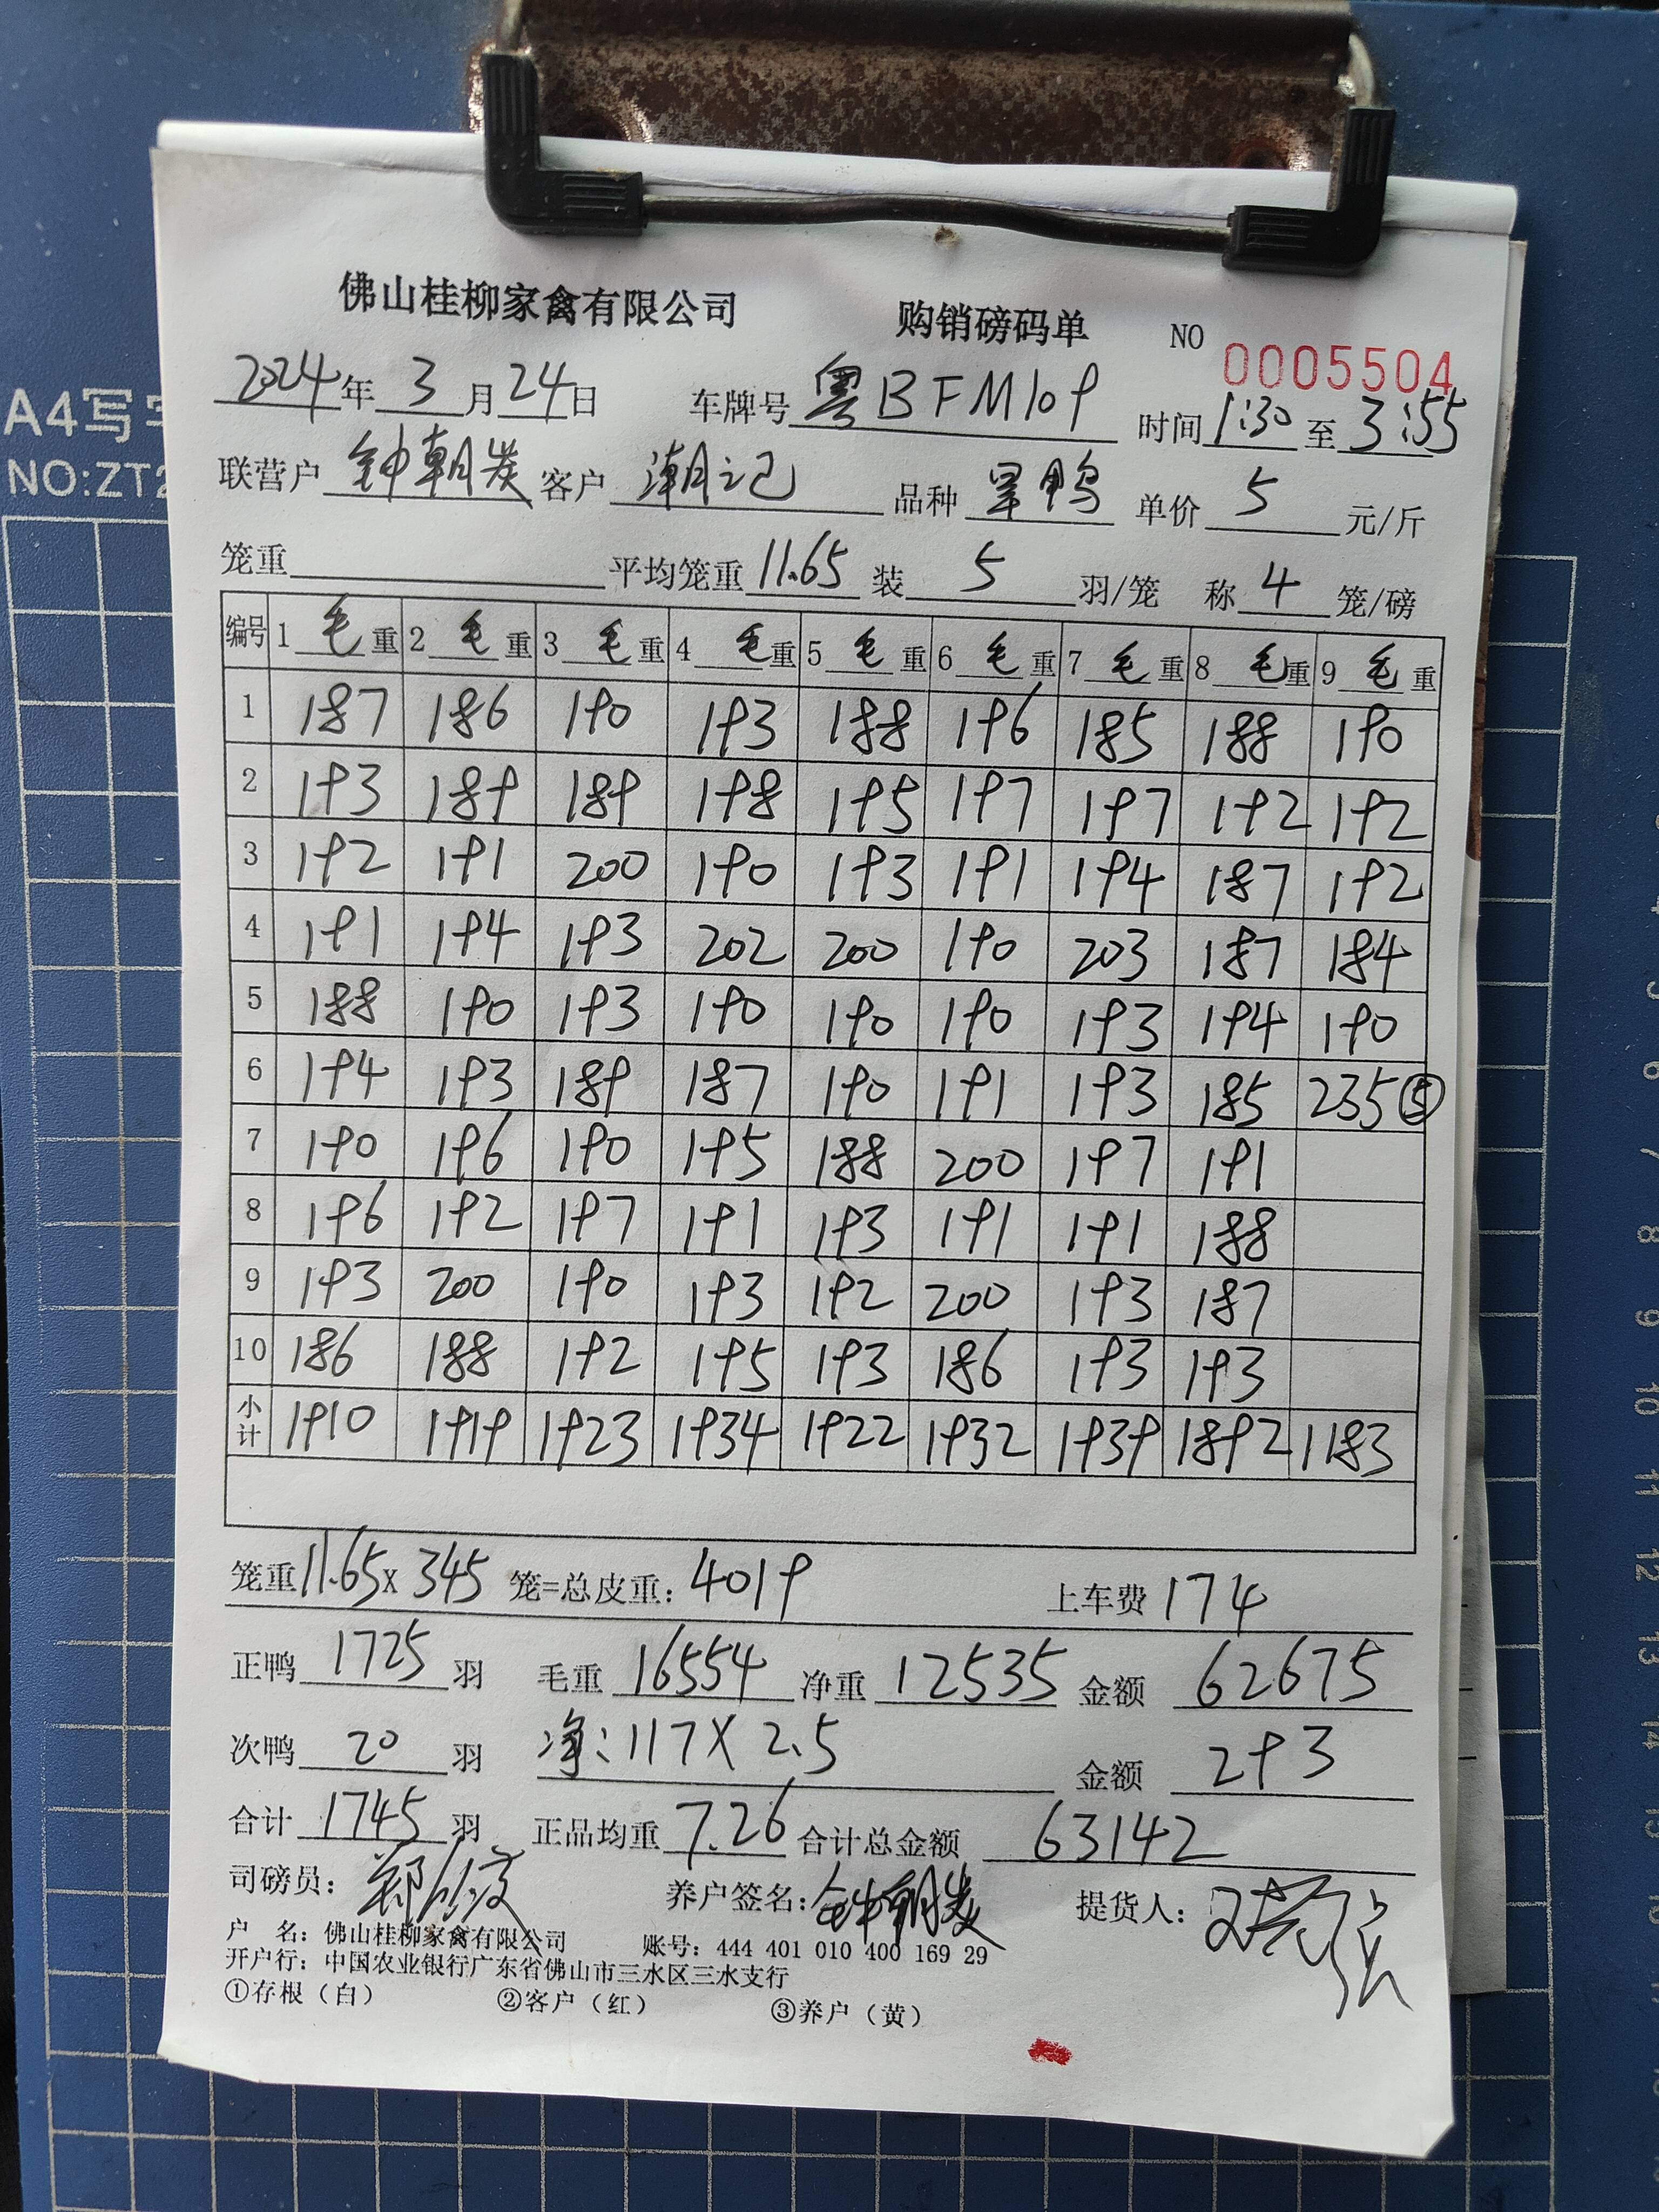 佛山桂柳家禽有限公司 购销磅码单 NO 0005504
2024年 3 月 24 日 车牌号 粤BFM109 时间 1:30 至 3:55
联营户 钟朝炭 客户 潮记 品种 旱鸭 单价 5 元/斤
笼重 平均笼重 11.65 装 5 羽/笼 称 4 笼/磅
编号 1 毛重 2 毛重 3 毛重 4 毛重 5 毛重 6 毛重 7 毛重 8 毛重 9 毛重
1 187 186 190 193 188 196 185 188 190
2 193 189 189 198 195 197 197 192 192
3 192 191 200 190 193 191 194 187 192
4 191 194 193 202 200 190 203 187 184
5 188 190 193 190 190 190 193 194 190
6 194 193 189 187 190 191 193 185 235⑤
7 190 196 190 195 188 200 197 191
8 196 192 197 191 193 191 191 188
9 193 200 190 193 192 200 193 187
10 186 188 192 195 193 186 193 193
小计 1910 1919 1923 1934 1922 1932 1939 1892 1183
笼重 11.65 x 345 笼=总皮重: 4019 上车费 174
正鸭 1725 羽 毛重 16554 净重 12535 金额 62675
次鸭 20 羽 净: 117 X 2.5 金额 293
合计 1745 羽 正品均重 7.26 合计总金额 63142
司磅员: 养户签名: 提货人:
户 名: 佛山桂柳家禽有限公司 账号: 444 401 010 400 169 29
开户行: 中国农业银行广东省佛山市三水区三水支行
①存根（白） ②客户（红） ③养户（黄）
A4写字
NO:ZT2
4
5
6
7
8
9
10
11
12
13
14
15